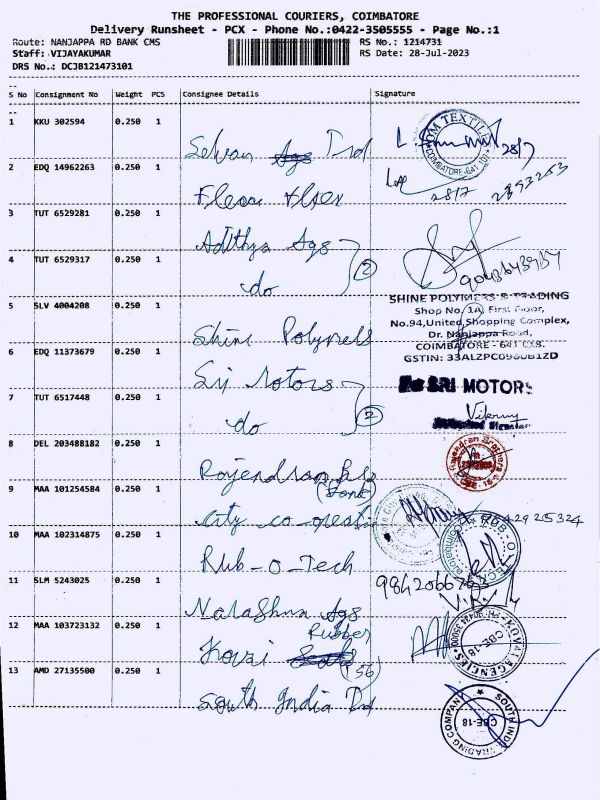 THE PROFESSIONAL COURIERS, COIMBATORE
Delivery Runsheet - PCX - Phone No.:0422-3505555 - Page No.:1
Route: NANJAPPA RD BANK CMS RS No.: 1214731
Staff: VIJAYAKUMAR RS Date: 28-Jul-2023
DRS No.: DCJB121473101
S No Consignment No Weight PCS Consignee Details Signature
1 KKU 302594 0.250 1
Selvan Ags Trd
TOM TEXTILE COIMBATORE-641 107 28/7
2 EDQ 14962263 0.250 1
28/7 2393203
3 TUT 6529281 0.250 1
Adithya Ags
4 TUT 6529317 0.250 1
do 2
SHINE POLYMERS & TRADING
Shop No. 1A, First Floor,
No.94, United Shopping Complex,
Dr. Nanjappa Road,
COIMBATORE - 641 018.
5 SLV 4004208 0.250 1
Shine Polymers
6 EDQ 11373679 0.250 1
Sri Motors
SRI MOTORS
7 TUT 6517448 0.250 1
do 2
8 DEL 203488182 0.250 1
Rajendran Bros
Rajendran Brothers CBE - 18
9 MAA 101254584 0.250 1
(Bank)
City co-operati
10 MAA 102314875 0.250 1
Rub-o-Tech
RUB-O-TECH
9842066763
11 SLM 5243025 0.250 1
Narashun Ags
12 MAA 103723132 0.250 1
Rubber
Kovai
KOVAI AGENCIES CBE-18
13 AMD 27135500 0.250 1
(56)
South India Trd
SOUTH INDIA TRADING COMPANY CBE-18